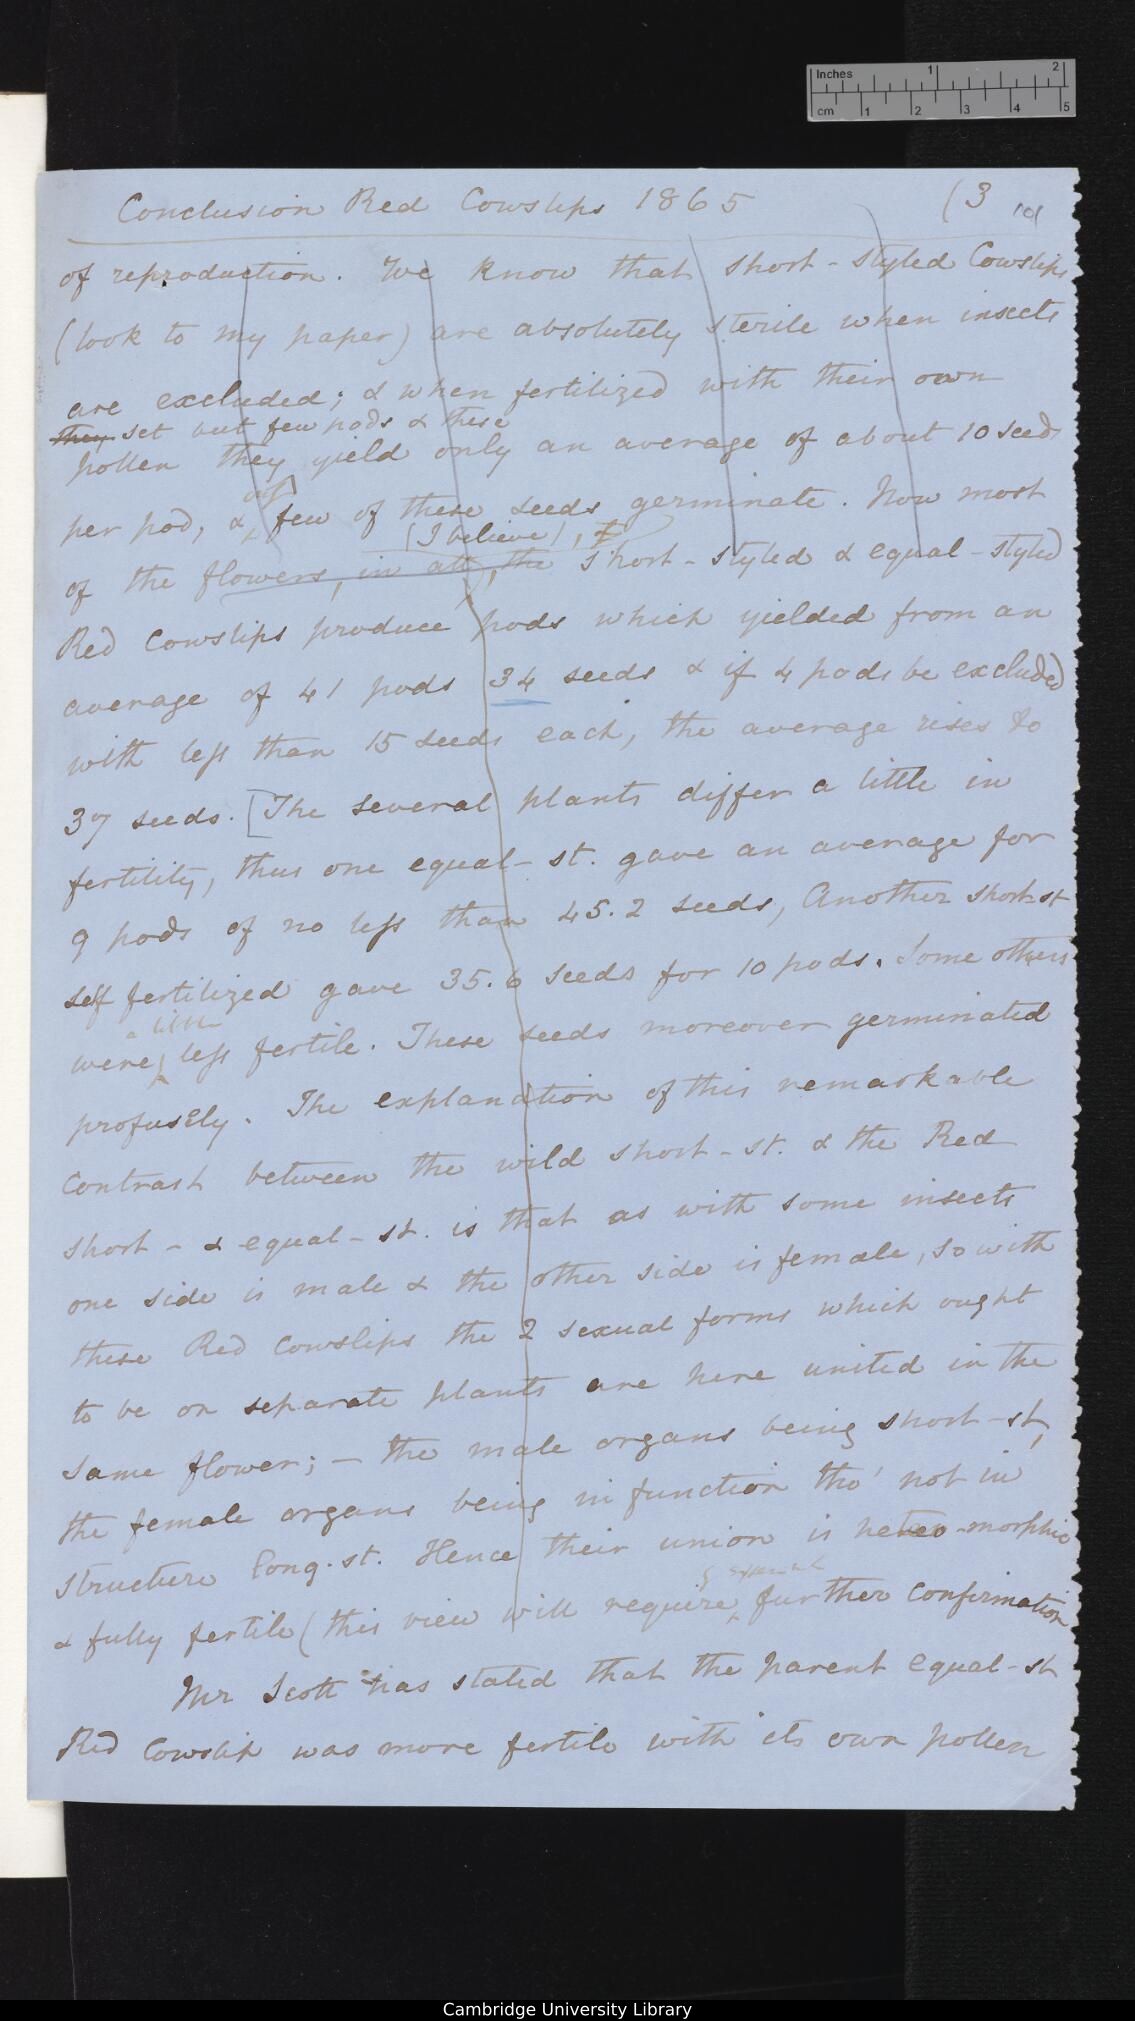 Inches 1 2
cm 1 2 3 4 5
Conclusion Red Cowslips 1865 (3
of reproduction. We know that short-styled Cowslips
(look to my paper) are absolutely sterile when insects
are excluded; & when fertilized with their own
they set but few pods & these
pollen they yield only an average of about 10 seeds
per pod, & few of these seeds germinate. Now most
(I believe),
of the flowers, in all, the short-styled & equal-styled
Red Cowslips produce pods which yielded from an
average of 41 pods 34 seeds & if 4 pods be excluded
with less than 15 seeds each, the average rises to
37 seeds. [The several plants differ a little in
fertility, thus one equal-st. gave an average for
9 pods of no less than 45.2 seeds, Another short-st
self fertilized gave 35.6 seeds for 10 pods. Some others
a little
were less fertile. These seeds moreover germinated
profusely. The explanation of this remarkable
contrast between the wild short-st. & the Red
short- & equal-st. is that as with some insects
one side is male & the other side is female, so with
these Red Cowslips the 2 sexual forms which ought
to be on separate plants are here united in the
same flower; — the male organs being short-st,
the female organs being in function tho' not in
structure long-st. Hence their union is hetero-morphic
& fully fertile (this view will require further confirmation
Mr Scott has stated that the parent equal-st
Red Cowslip was more fertile with its own pollen
Cambridge University Library